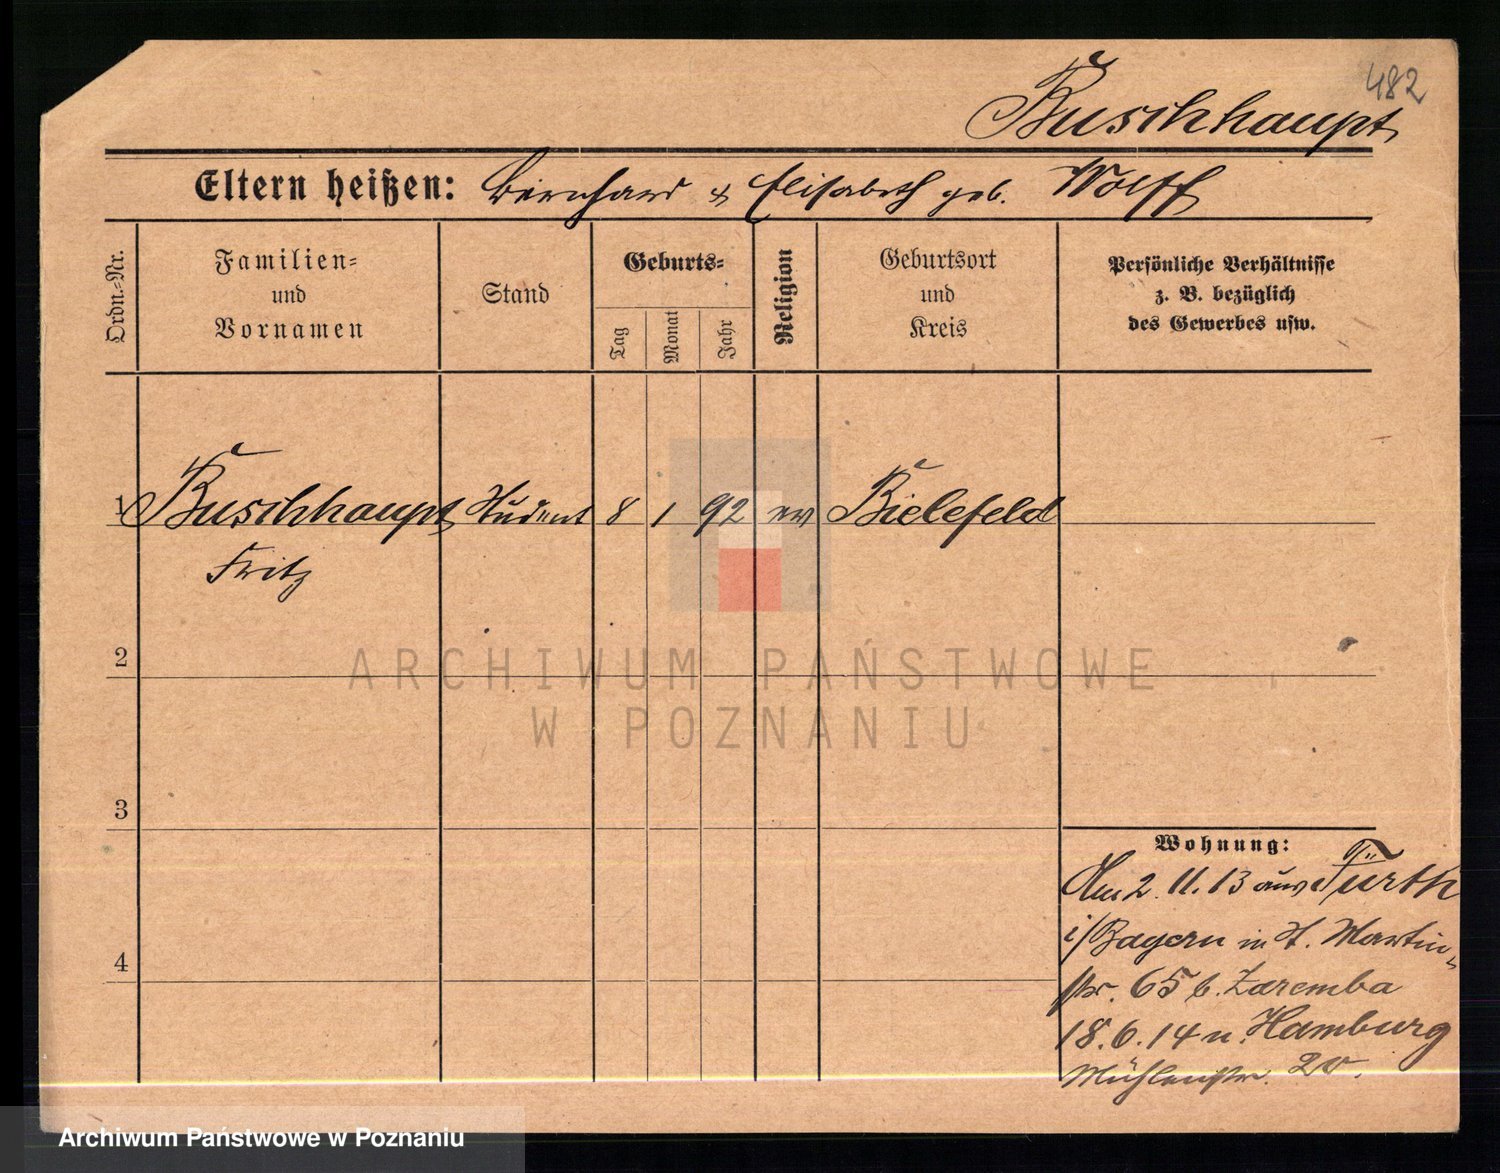 482
Buschhaupt
Eltern heißen: Bernhard & Elisabeth geb. Wolff
Ordn.-Nr.
Familien-
und
Vornamen
Stand
Geburts-
Tag
Monat
Jahr
Religion
Geburtsort
und
Kreis
Persönliche Verhältnisse
z. B. bezüglich
des Gewerbes usw.
1 Buschhaupt Student 8 1 92 ev Bielefeld
Fritz
2
3
4
Wohnung:
Am 2. 11. 13 aus Fürth
i/Bayern in St. Martin-
str. 65 b. Zaremba
18. 6. 14 n. Hamburg
Mühlenstr. 20.
ARCHIWUM PAŃSTWOWE
W POZNANIU
Archiwum Państwowe w Poznaniu